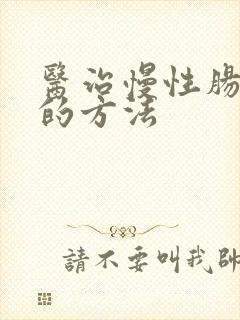 醫治慢性腸
的方法
請不要叫我帥